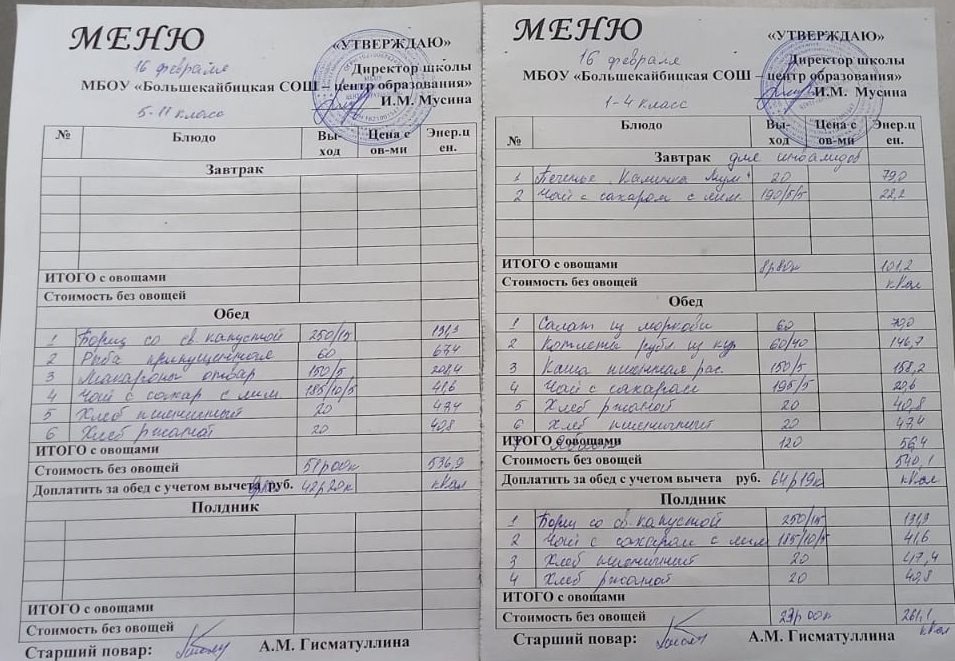 МЕНЮ
«УТВЕРЖДАЮ»
16 февраля
Директор школы
МБОУ «Большекайбицкая СОШ – центр образования»
И.М. Мусина
5-11 класс
№ Блюдо Вы-ход Цена с ов-ми Энер.ц ен.
Завтрак
ИТОГО с овощами
Стоимость без овощей
Обед
1 Борщ со св. капустой 250/15 131,9
2 Рыба припущенная 60 67,4
3 Макароны отвар 150/5 208,4
4 Чай с сахар с лим. 185/10/5 41,6
5 Хлеб пшеничный 20 47,4
6 Хлеб ржаной 20 40,8
ИТОГО с овощами
Стоимость без овощей 51р00к 536,9
Доплатить за обед с учетом вычета руб. 42р20к кКал
Полдник
ИТОГО с овощами
Стоимость без овощей
Старший повар: А.М. Гисматуллина
МЕНЮ
«УТВЕРЖДАЮ»
16 февраля
Директор школы
МБОУ «Большекайбицкая СОШ – центр образования»
И.М. Мусина
1-4 класс
№ Блюдо Вы-ход Цена с ов-ми Энер.ц ен.
Завтрак для инвалидов
1 Печенье 20 79,0
2 Чай с сахаром с лим. 190/5/5 22,2
ИТОГО с овощами 8р80к 101,2
Стоимость без овощей кКал
Обед
1 Салат из моркови 60 79,0
2 Котлеты рубл. из кур 60/40 146,7
3 Каша пшеничная рас. 150/5 158,2
4 Чай с сахаром 195/5 20,6
5 Хлеб ржаной 20 40,8
6 Хлеб пшеничный 20 47,4
ИТОГО с овощами
7 Яблоко 120 56,4
Стоимость без овощей 540,1
Доплатить за обед с учетом вычета руб. 64р19к кКал
Полдник
1 Борщ со св. капустой 250/15 131,9
2 Чай с сахаром с лим 185/10/5 41,6
3 Хлеб пшеничный 20 47,4
4 Хлеб ржаной 20 40,8
ИТОГО с овощами
Стоимость без овощей 29р00к 261,1
кКал
Старший повар: А.М. Гисматуллина